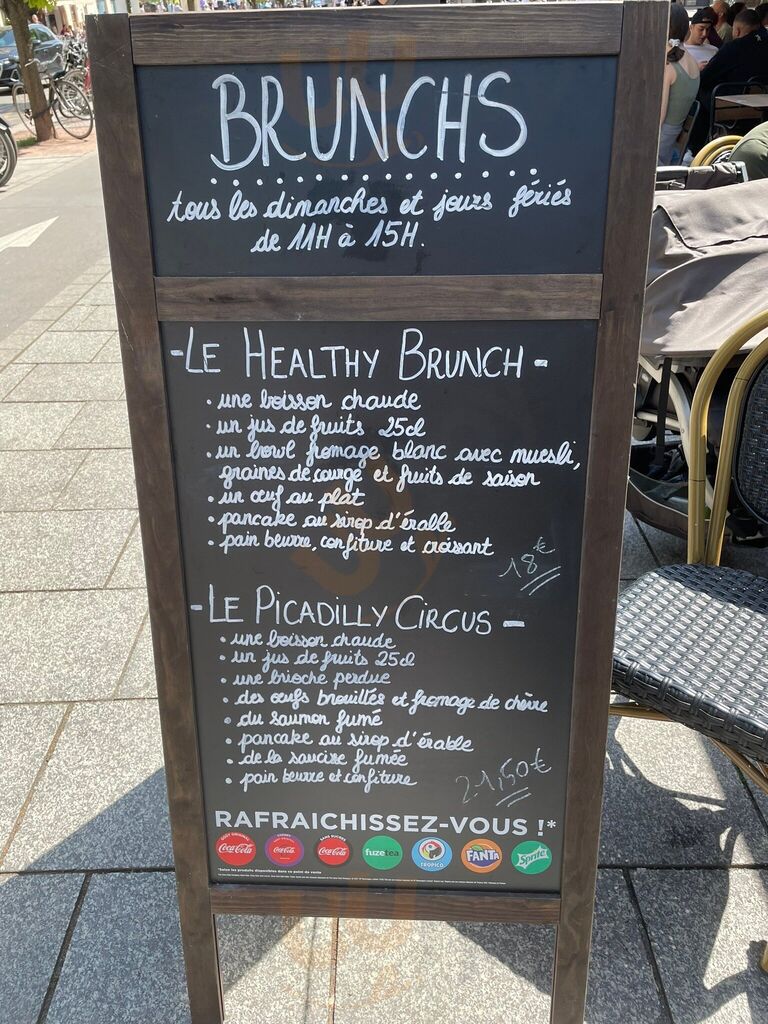 BRUNCHS
tous les dimanches et jours fériés
de 11H à 15H.
-LE HEALTHY BRUNCH-
• une boisson chaude
• un jus de fruits 25cl
• un bowl fromage blanc avec muesli,
graines de courge et fruits de saison
• un œuf au plat
• pancake au sirop d'érable
• pain beurre, confiture et croissant
18€
-LE PICADILLY CIRCUS-
• une boisson chaude
• un jus de fruits 25cl
• une brioche perdue
• des œufs brouillés et fromage de chèvre
• du saumon fumé
• pancake au sirop d'érable
• de la saucisse fumée
• pain beurre et confiture
21,50€
RAFRAICHISSEZ-VOUS !*
GOÛT ORIGINAL Coca-Cola
Coca-Cola
SANS SUCRES Coca-Cola
fuzetea
TROPICO
FANTA
Sprite
*Selon les produits disponibles dans ce point de vente